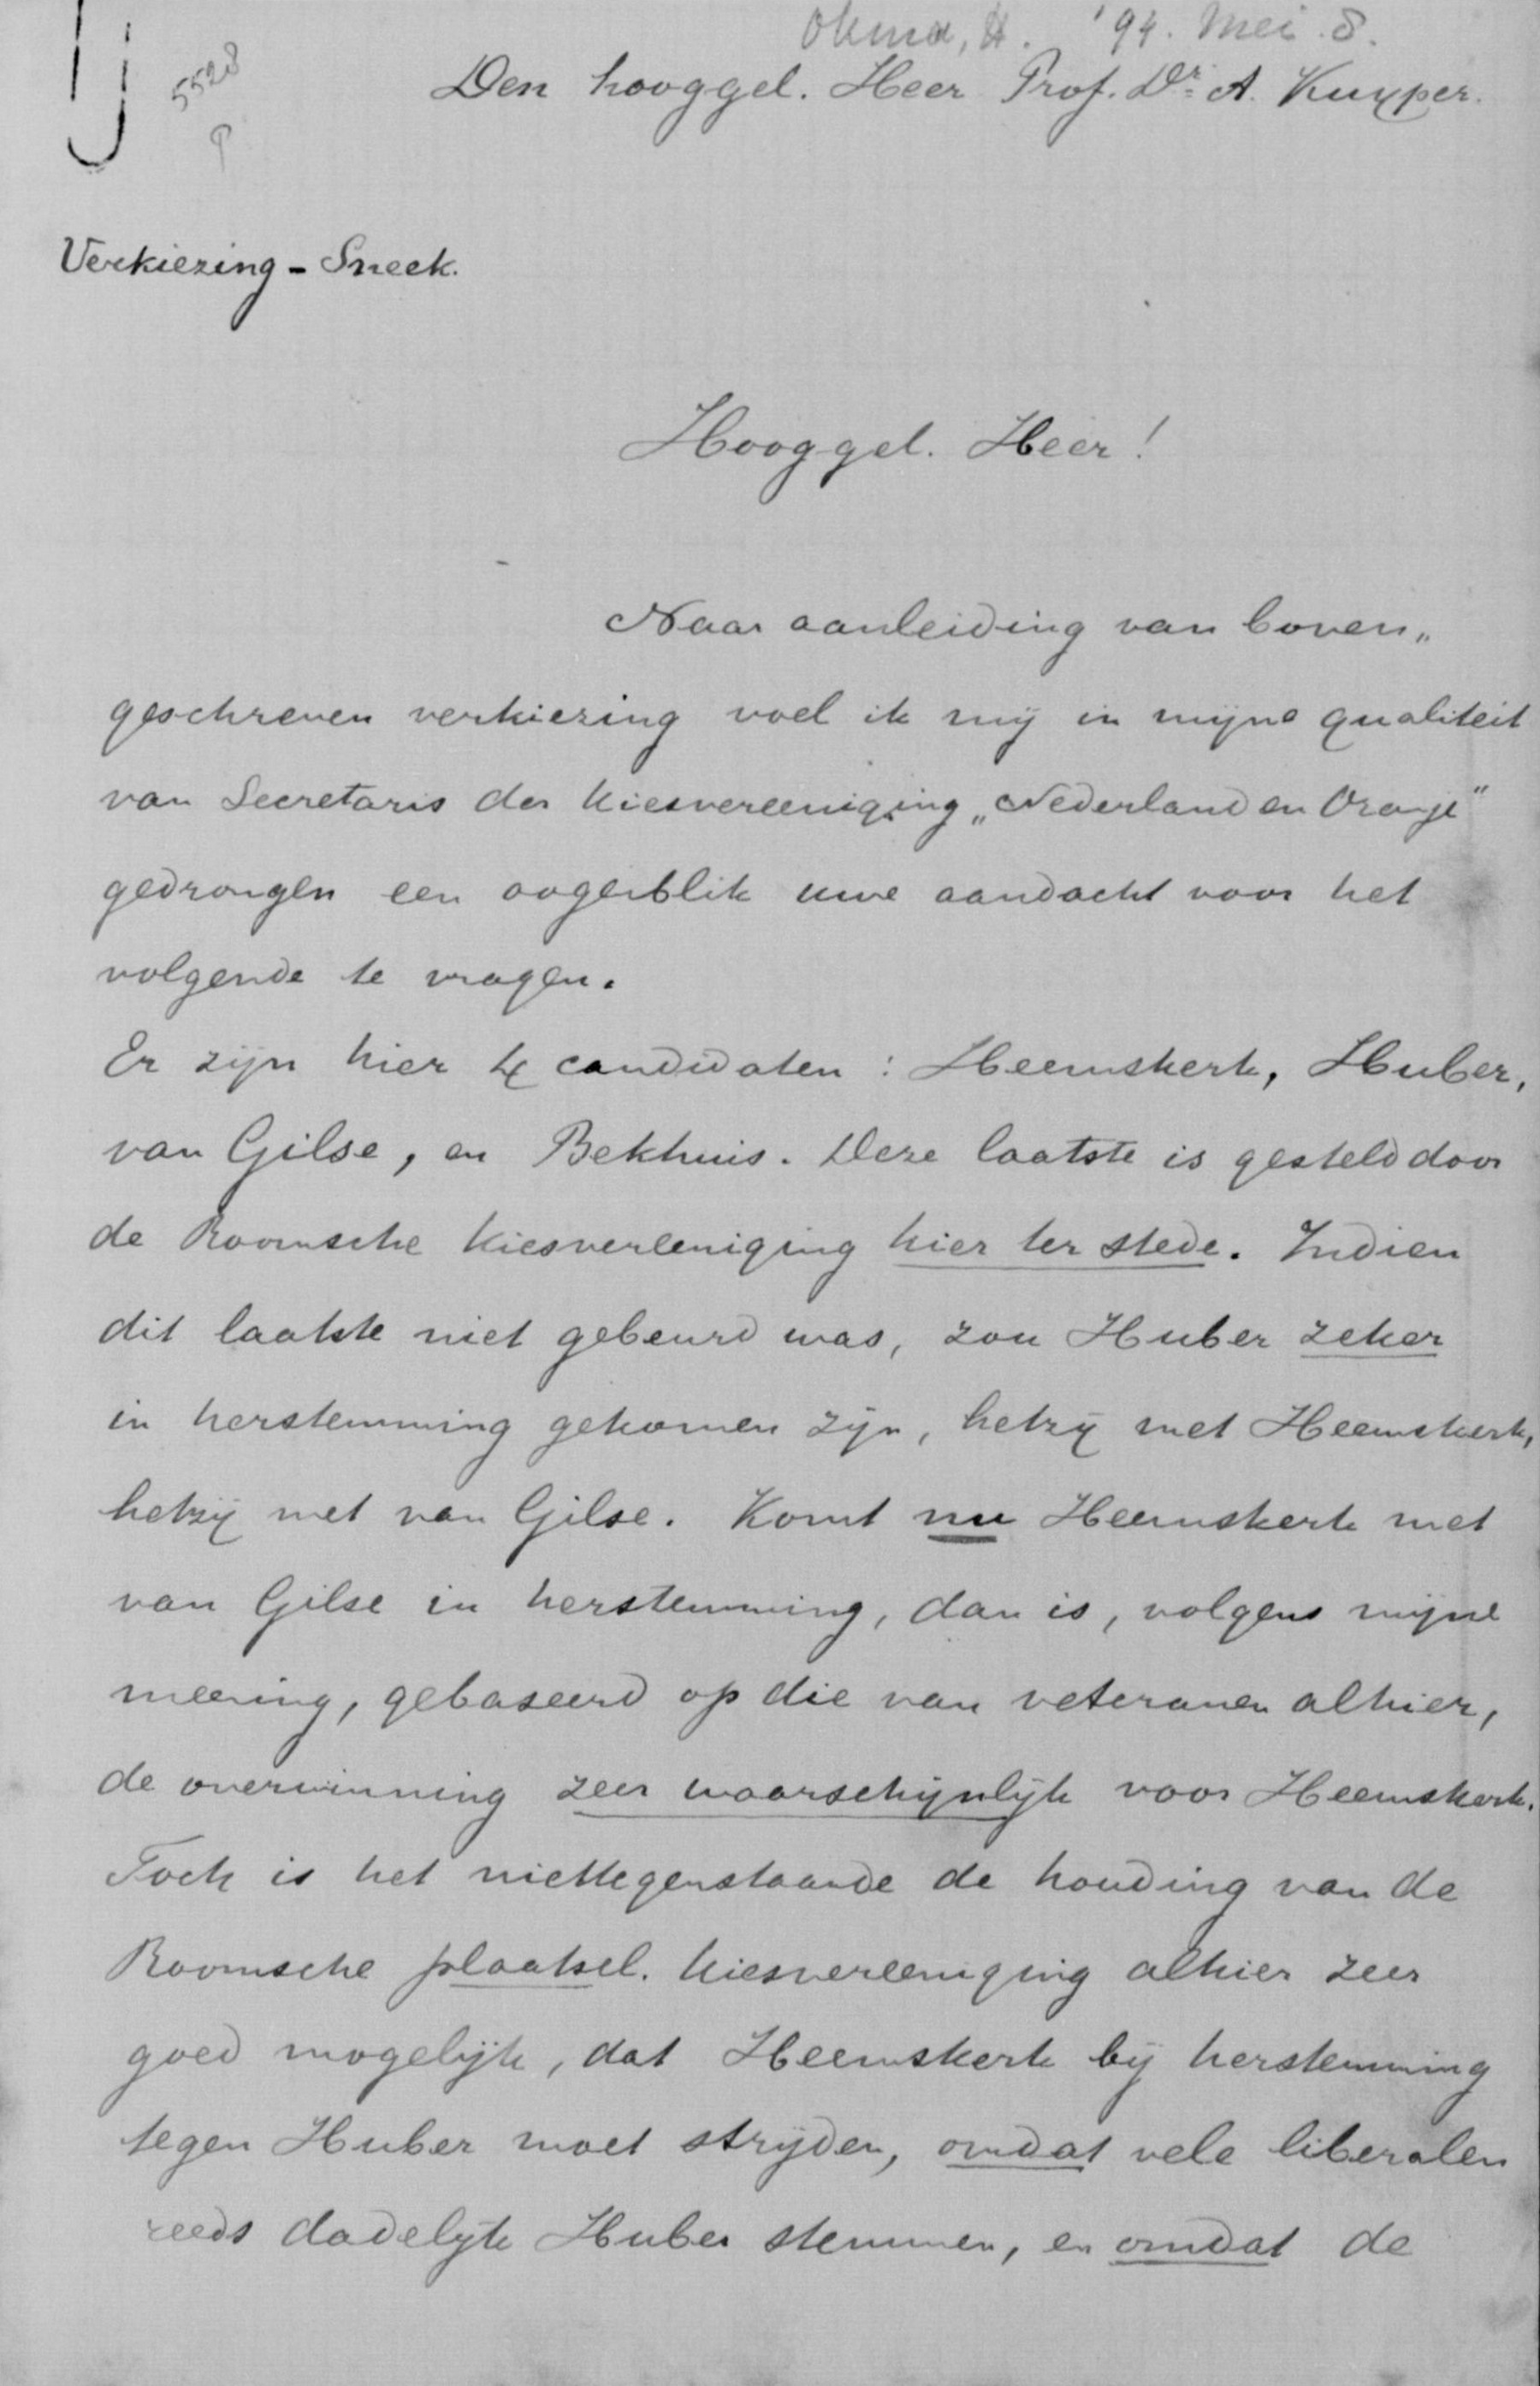 Okma, H. '94. Mei. 8.
5528
Den hooggel. Heer Prof. Dr. A. Kuyper.
Verkiezing - Sneek.
Hooggel. Heer!
Naar aanleiding van boven„
geschreven verkiezing voel ik mij in mijne qualiteit
van Secretaris der Kiesvereeniging „Nederland en Oranje"
gedrongen een oogenblik uwe aandacht voor het
volgende te vragen.
Er zijn hier 4 candidaten : Heemskerk, Huber,
van Gilse, en Bekhuis. Deze laatste is gesteld door
de Roomsche Kiesvereeniging hier ter stede. Indien
dit laatste niet gebeurd was, zou Huber zeker
in herstemming gekomen zijn, hetzij met Heemskerk,
hetzij met van Gilse. Komt nu Heemskerk met
van Gilse in herstemming, dan is, volgens mijne
meening, gebaseerd op die van veteranen alhier,
de overwinning zeer waarschijnlijk voor Heemskerk.
Toch is het niettegenstaande de houding van de
Roomsche plaatsel. Kiesvereeniging alhier zeer
goed mogelijk, dat Heemskerk bij herstemming
tegen Huber moet strijden, omdat vele liberalen
reeds dadelijk Huber stemmen, en omdat de